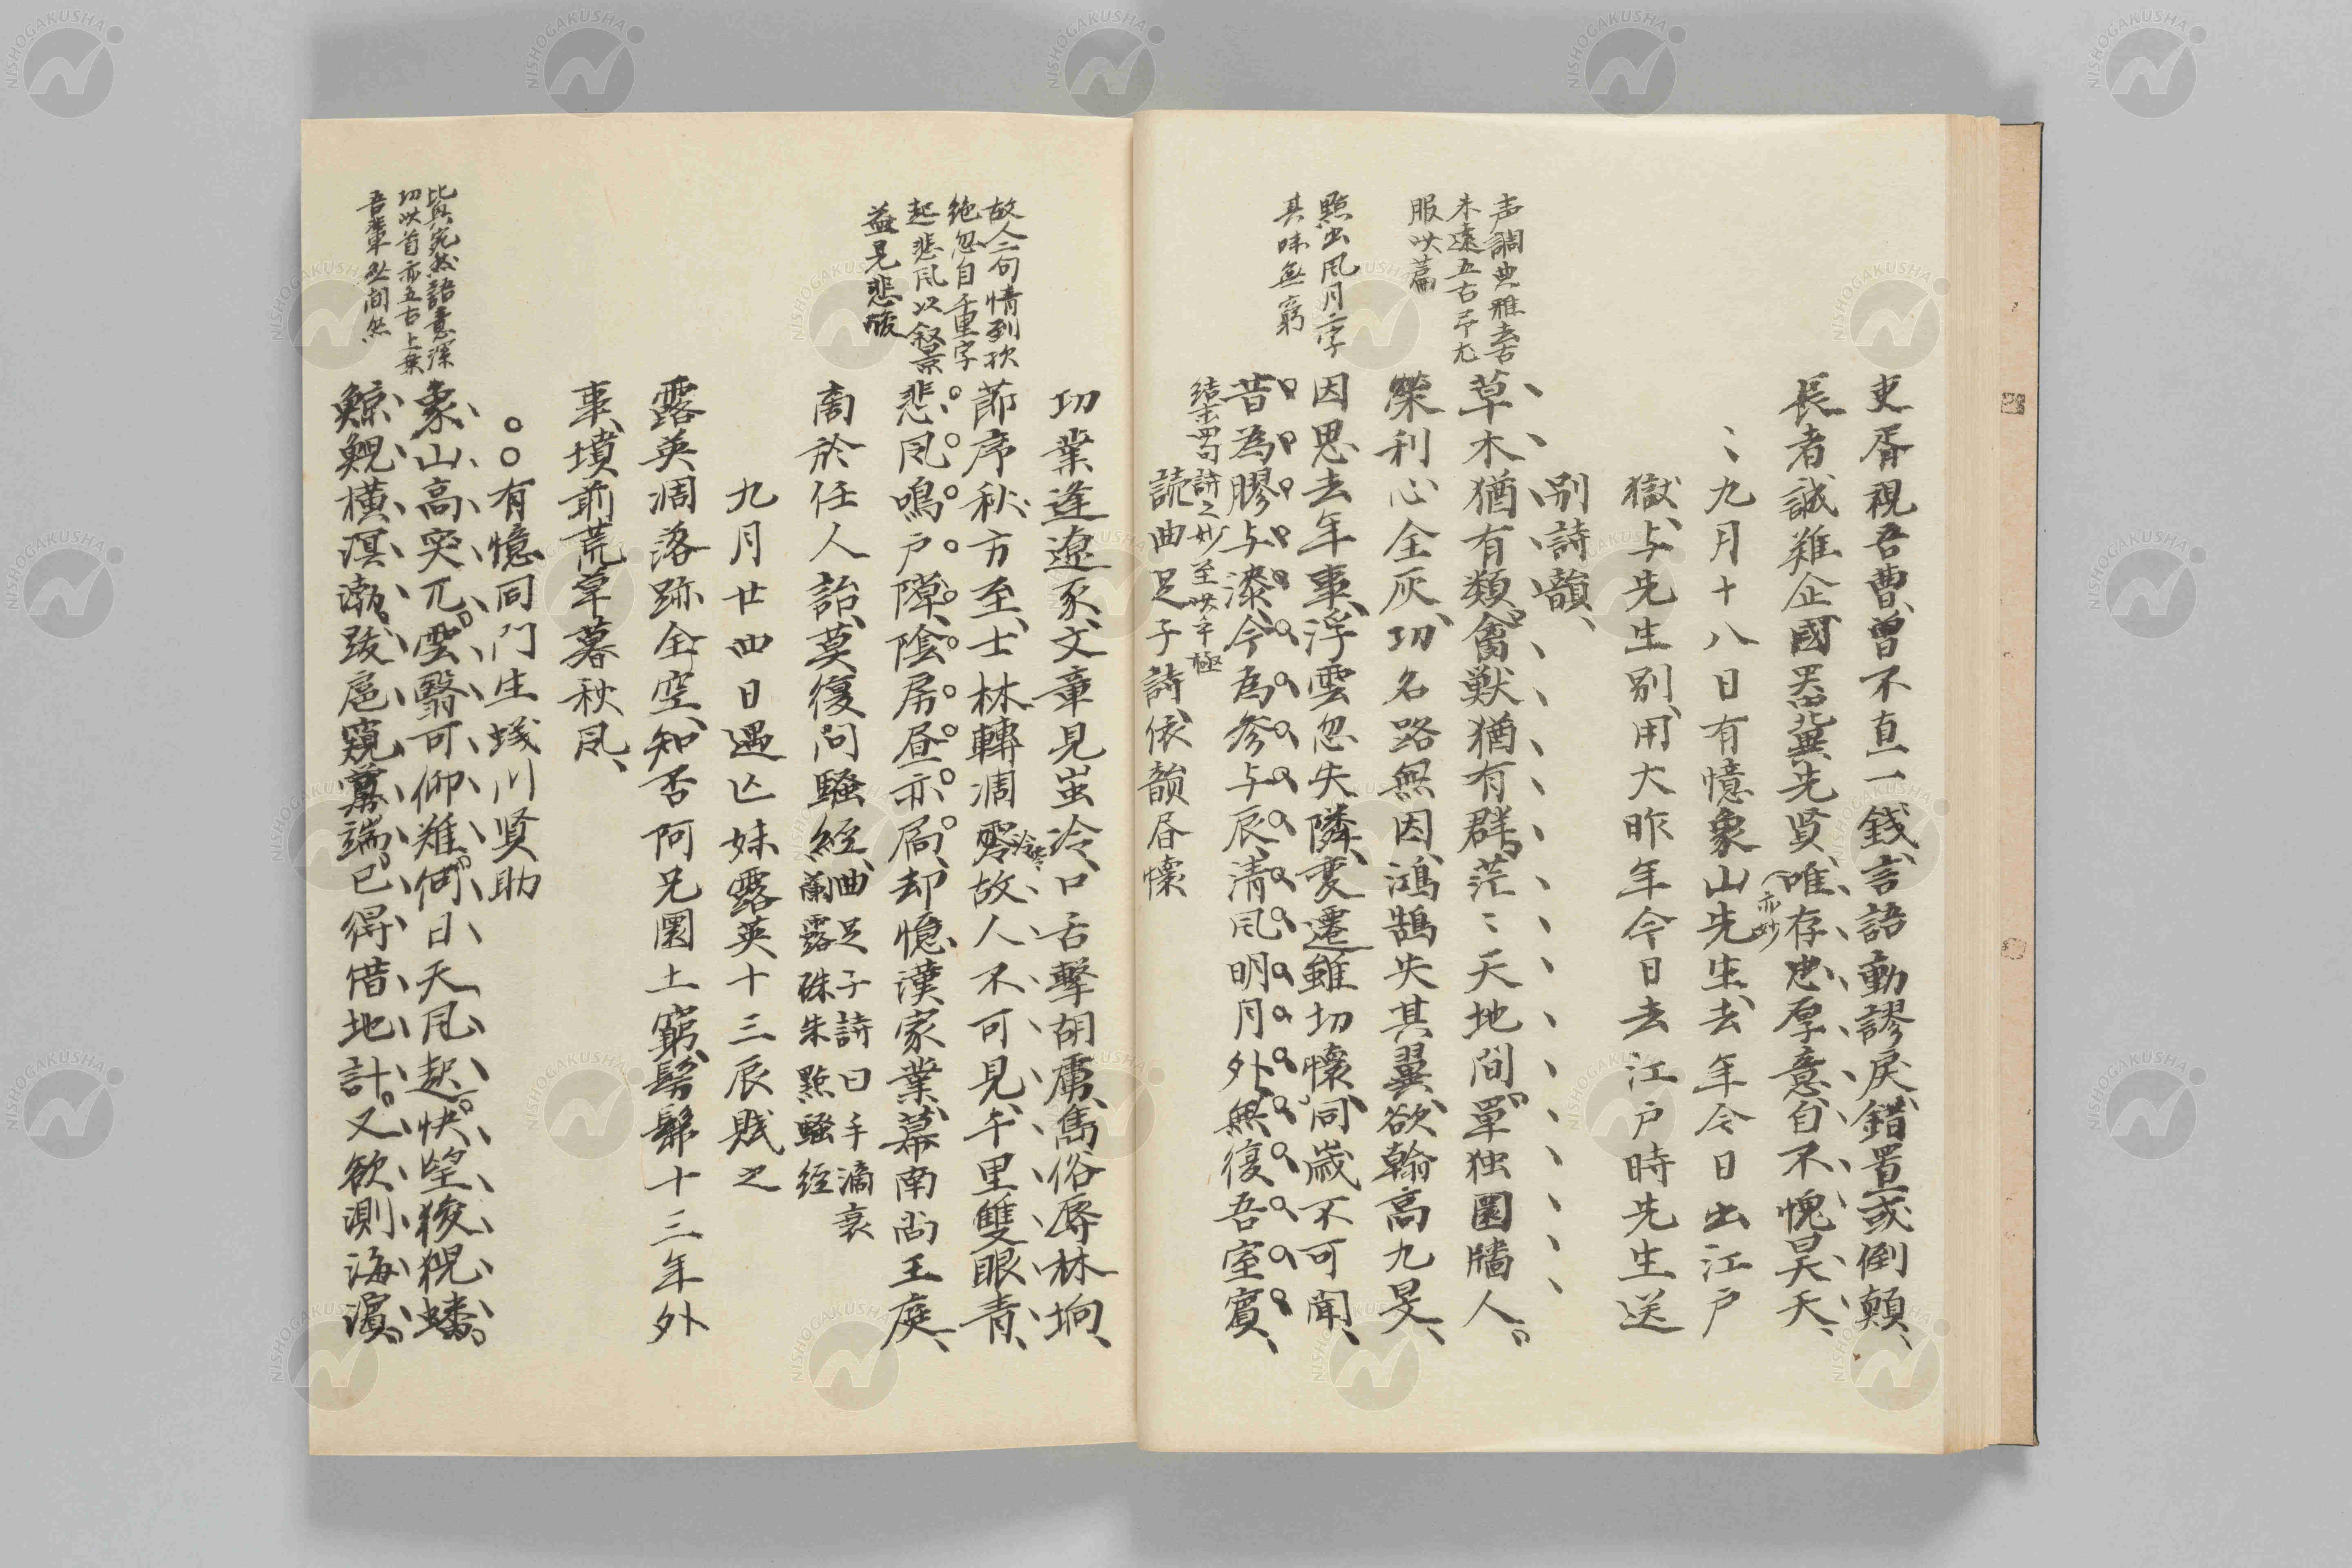 吏胥視吾曹、曽不直一銭、言語動謬戻、錯置或倒顛、
長者誠難企、國器冀先賢、唯存忠厚意、自不愧昊天、
亦妙
〻九月十八日有憶象山先生、去年今日出江戸
獄、与先生別、用大昨年今日去江戸時先生送
別詩韻、
声調典雅去古
未遠五古尤
服此篇
草木猶有類、禽獣猶有群、茫〻天地間、単独圜牆人。
榮利心全灰、功名路無因、鴻鵠失其翼、欲翰高九旻、
點出風月二字
其味無窮
因思去年事、浮雲忽失隣、変遷雖切懐、同歳不可聞、
昔為膠与漆、今為参与辰、清風明月外、無復吾室賓、
結末四句詩之妙至此乎極
読曲足子詩、依韻昏懐
功業逢遼豕、文章見蚩冷、口舌撃胡虜、雋俗辱林坰、
故人二句情到
絶忽自千重字
起悲風以叙景
益見悲酸
節序秋方至、士林轉凋零、故人不可見、千里雙眼青、
冷零
悲風鳴戸障、陰房昼亦扃、却憶漢家業、幕南尚王庭、
商於任人詒、莫復問騒経、
曲足子詩曰手滴衰
蘭露硃朱點騒経
九月廿四日遇亡妹露英十三辰賎之
露英凋落跡全空、知否阿兄圜土窮、髣髴十三年外
事、墳前荒草暮秋風、
〇〇有憶同門生蟻川贤助
比興宛然語意深
切此首亦五古上乗
吾輩無間然
象山高突兀。雲翳可仰難。何日天風起。快望狻猊蟠。
鯨鯢横溟渤。跋扈窺釁端。已得借地計。又欲測海濵。